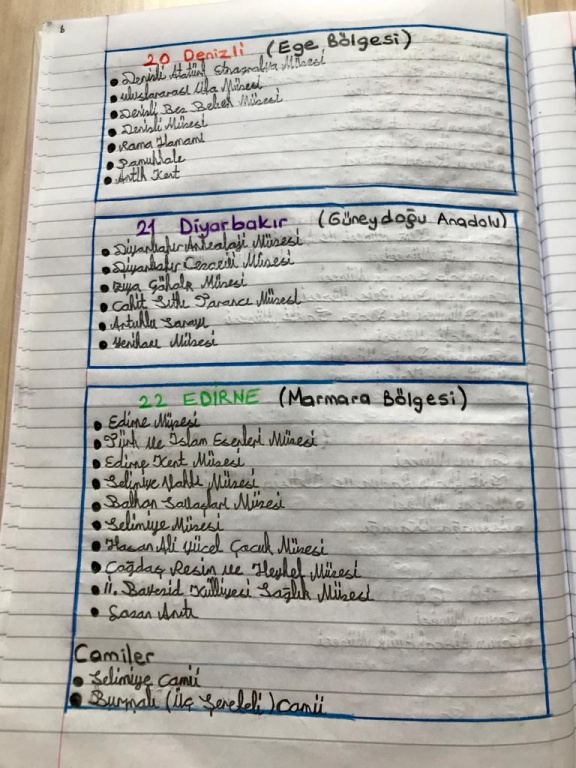 6
20 Denizli (Ege Bölgesi)
Denizli Atatürk Etnografya Müzesi
Uluslararası Müzesi
Denizli Bez Bebek Müzesi
Denizli Müzesi
Roma Hamamı
Pamukkale
Antik Kent
21 Diyarbakır (Güneydoğu Anadolu)
Diyarbakır Arkeoloji Müzesi
Diyarbakır Cezaevi Müzesi
Ziya Gökalp Müzesi
Cahit Sıtkı Tarancı Müzesi
Artuklu Sarayı
Müzesi
22 EDİRNE (Marmara Bölgesi)
Edirne Müzesi
Türk ve İslam Eserleri Müzesi
Edirne Kent Müzesi
Selimiye Vakfı Müzesi
Balkan Savaşları Müzesi
Selimiye Müzesi
Hasan Ali Yücel Çocuk Müzesi
Çağdaş Resim ve Heykel Müzesi
II. Bayezid Külliyesi Sağlık Müzesi
Anıtı
Camiler
Selimiye Camii
Burmalı (Üç Şerefeli) Camii